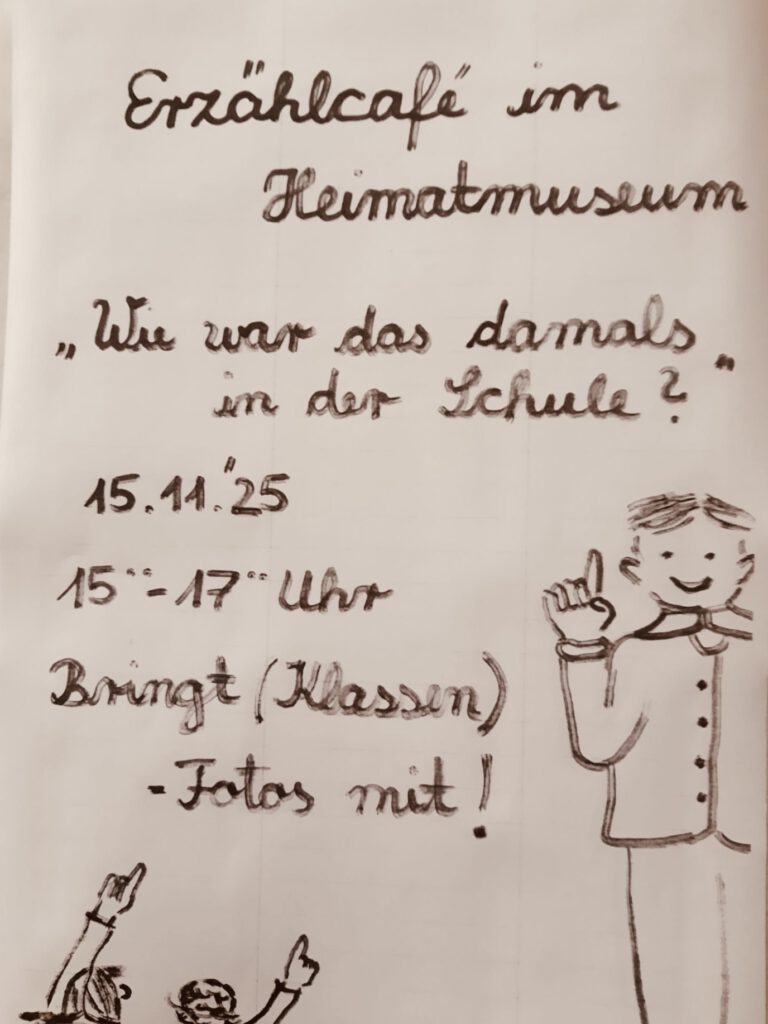 Erzählcafé im
Heimatmuseum
„Wie war das damals
in der Schule?"
15.11.'25
15°°-17°° Uhr
Bringt (Klassen)
-Fotos mit!